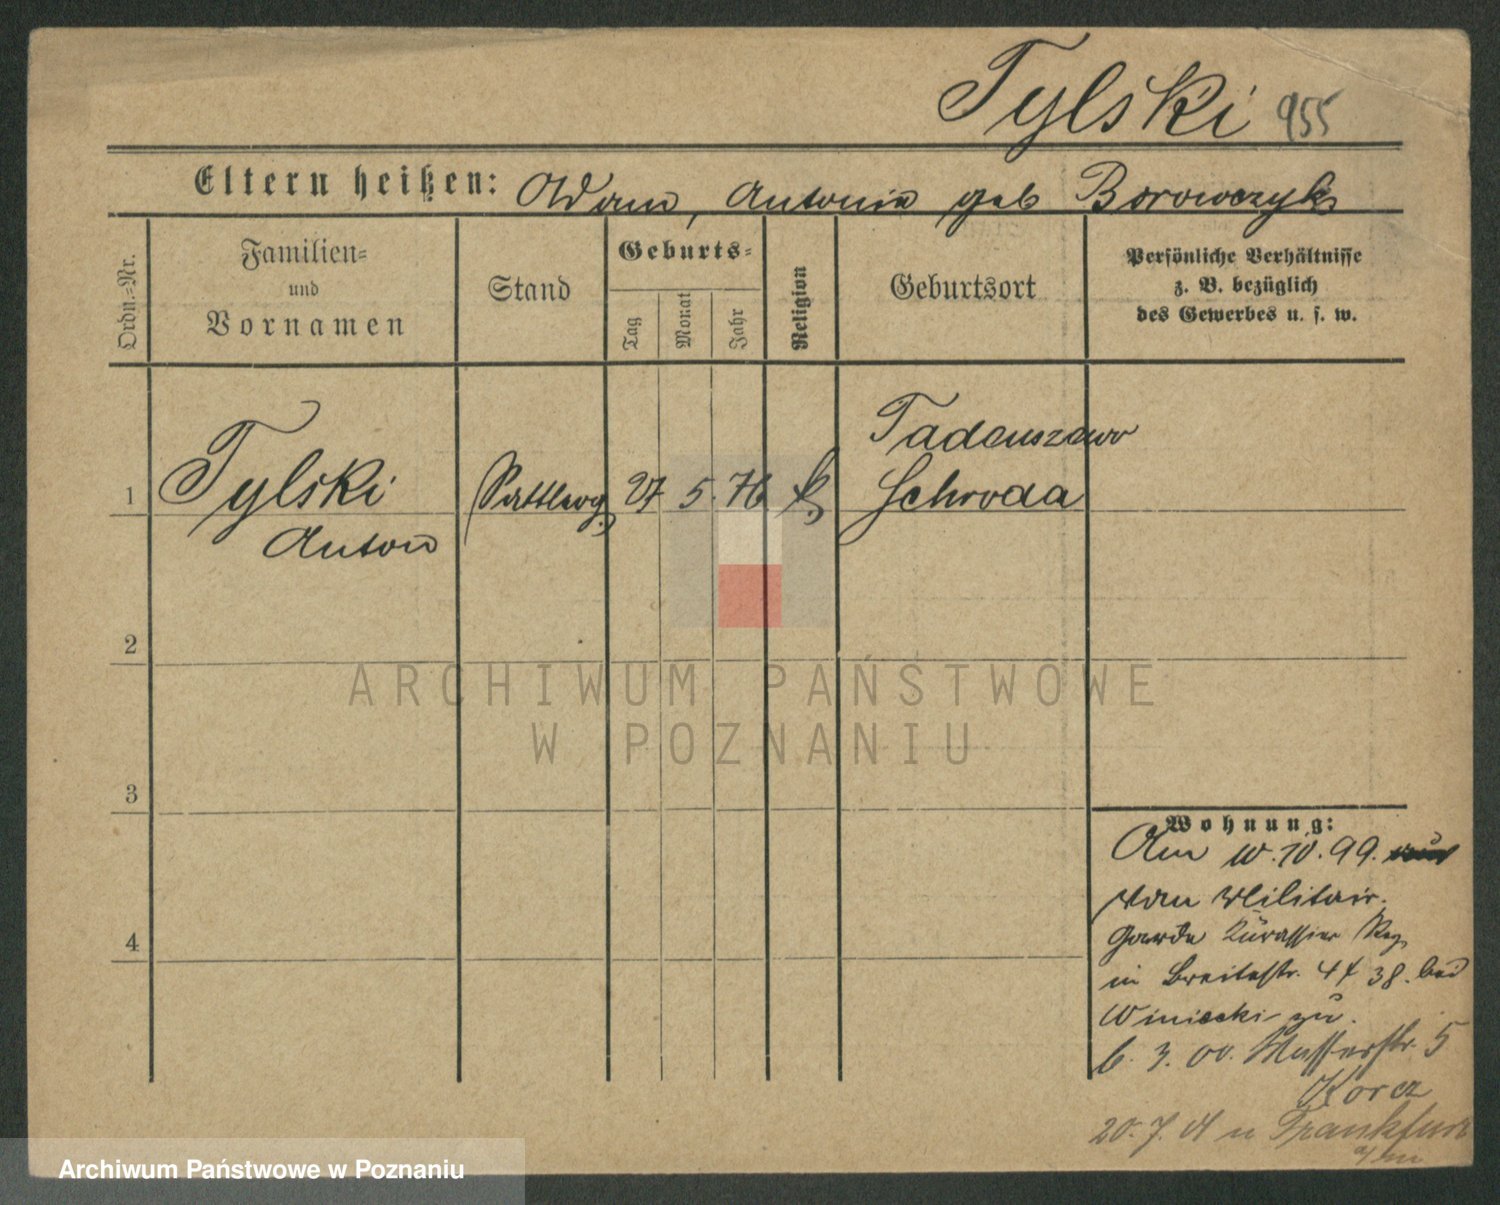 Tylski 955
Eltern heißen: Adam, Antonie geb Borowczyk
Ordn.=Nr.
Familien=
und
Vornamen
Stand
Geburts=
Tag
Monat
Jahr
Religion
Geburtsort
Persönliche Verhältnisse
z. B. bezüglich
des Gewerbes u. s. w.
1
Tylski
Anton
Sattlerg.
27 5. 76
k.
Tadeuszewo
Schroda
2
3
4
ARCHIWUM PAŃSTWOWE
W POZNANIU
Wohnung:
Am 10.10.99.
vom Militair.
Garde Kürassier Reg.
in Breitestr. 4 38. bei
Winiecki zu.
6. 3. 00. Wasserstr. 5
Korcz
20. 7. 01 n Frankfurt
a/m
Archiwum Państwowe w Poznaniu